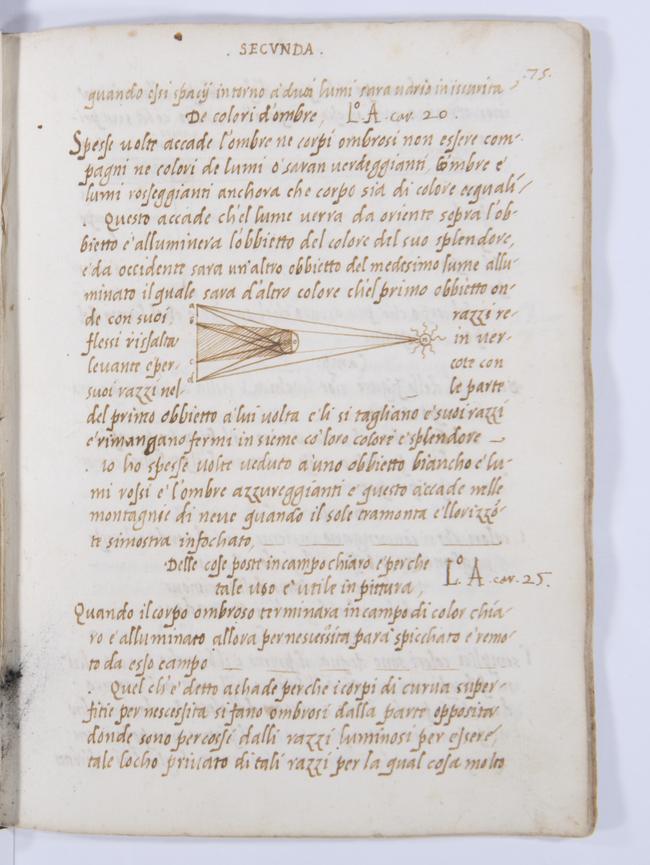 . SECVNDA .
.75.
quando essi spacij intorno a duoi lumi sara uario in iscurita,
De colori d'ombre, Lº A. car. 20.
Spesse uolte accade l'ombre ne corpi ombrosi non essere com-
pagni ne colori de lumi o saran uerdeggianti, l'ombre e
lumi rosseggianti anchora che corpo sia di colore aequali
. Questo accade ch'el lume uerra da oriente sopra l'ob-
bietto e' alluminera l'obbietto del colore del suo splendore,
e' da occidente sara un'altro obbietto del medesimo lume allu-
minato il quale sara d'altro colore ch'el primo obbietto on-
de con suoi razzi re-
flessi risalta in uer-
leuante e' per- cote con
suoi razzi nel- le parte
del primo obbietto a lui uolta e' li si tagliano e' suoi razzi
e' rimangano fermi in sieme co' loro colore e' splendore
. io ho spesse uolte ueduto a uno obbietto biancho e' lu-
mi rossi e' l'ombre azzureggianti e questo accade nelle
montagnie di neue quando il sole tramonta e' llorizzó-
te si mostra infochato,
Delle cose poste in campo chiaro e' perche
tale uso e' utile in pittura, Lº A. car. 25.
Quando il corpo ombroso terminara in campo di color chia-
ro e' alluminato allora per nesuessita parà spicchato e' remo-
to da esso campo
. Quel ch'e' detto achade perche i corpi di curua super-
fitie per nescessita si fano ombrosi dalla parte opposita
donde sono percossi dalli razzi luminosi per essere
tale locho priuato di tali razzi per la qual cosa molto